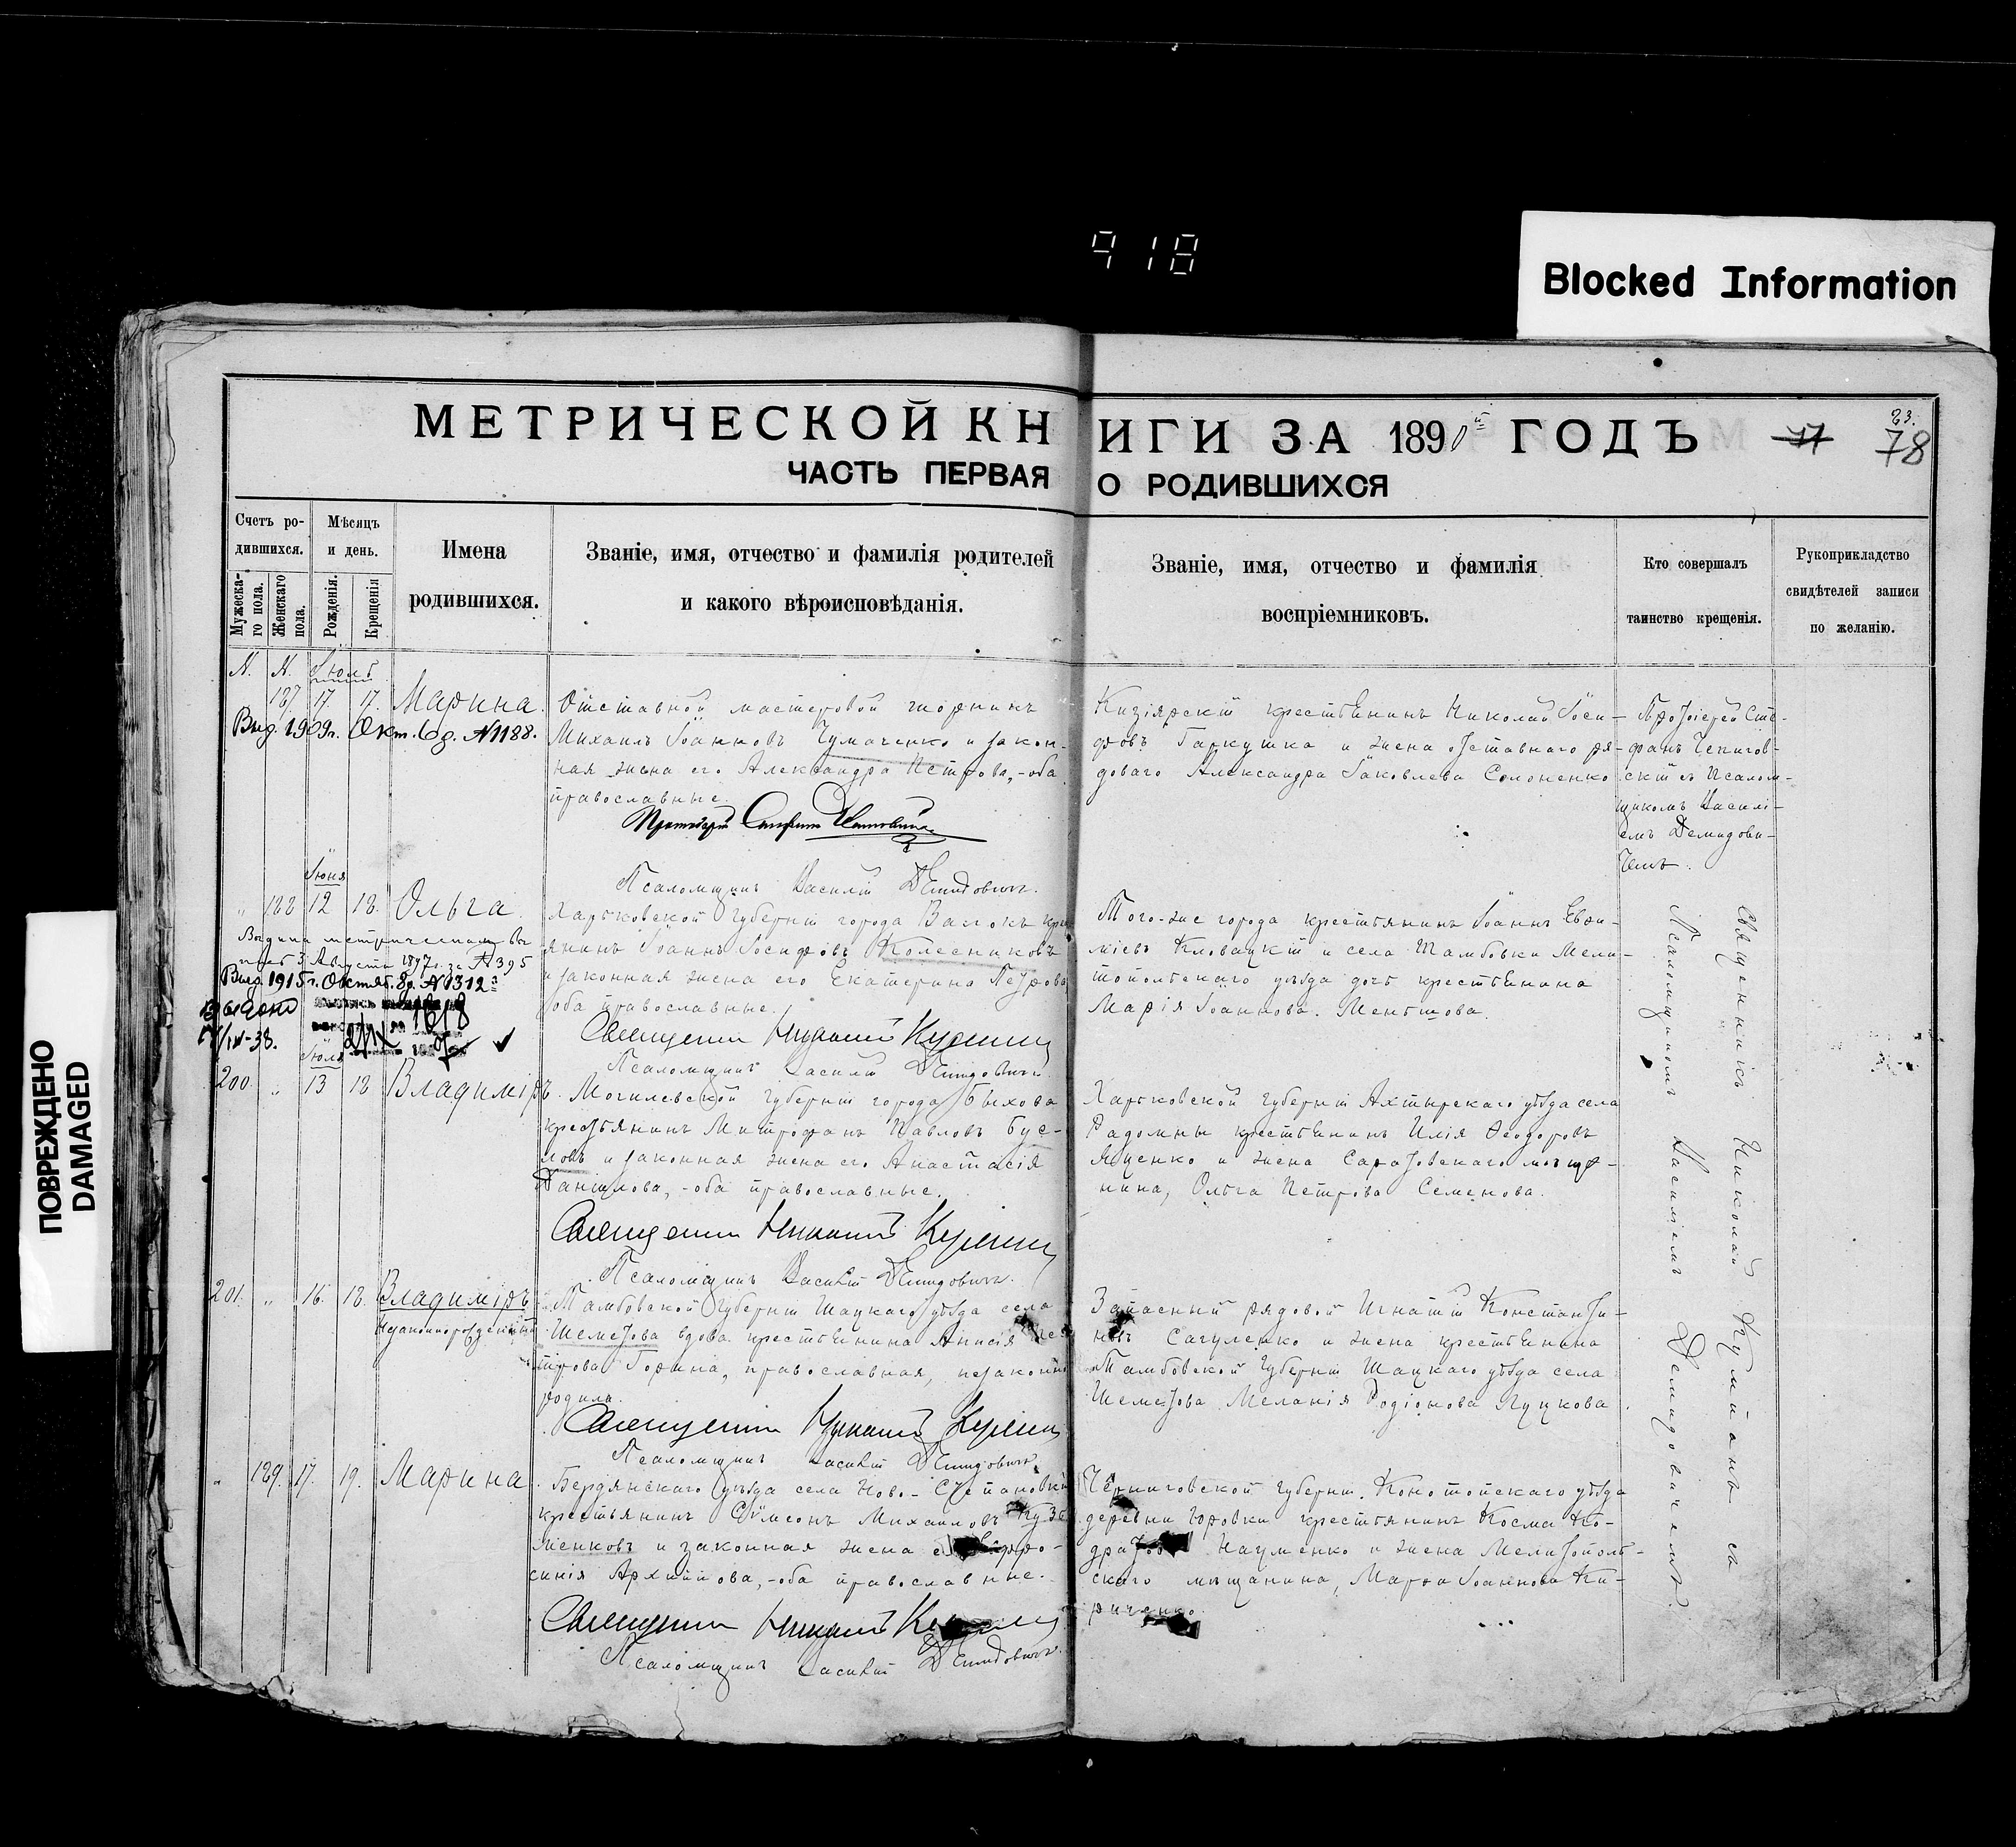 918
Blocked Information
ПОВРЕЖДЕНО
DAMAGED
МЕТРИЧЕСКОЙ КНИГИ ЗА 1890й ГОДЪ
77
23.
78
ЧАСТЬ ПЕРВАЯ О РОДИВШИХСЯ
Счетъ ро-
дившихся.
Мужеска-
го пола.
Женскаго
пола.
Мѣсяцъ
и день.
Рожденія.
Крещенія
Имена
родившихся.
Званіе, имя, отчество и фамилія родителей
и какого вѣроисповѣданія.
Званіе, имя, отчество и фамилія
воспріемниковъ.
Кто совершалъ
таинство крещенія.
Рукоприкладство
свидѣтелей записи
по желанію.
N. N. Іюль
187. 17. 17. Марина.
Выд. 1909г. Окт. 6д. №1188.
Отставной мастеровой
Михаилъ Іоанновъ Чумаченко и закон-
ная жена его Александра Петрова,-оба
православные.
Псаломщикъ Василій Демидовичъ.
крестьянинъ Николай Іоси-
фовъ Гаркушка и жена отставного ря-
доваго Александра Іаковлева Солоненко
Протоіерей Сте-
фанъ
скій съ Псалом-
щикомъ Василі-
емъ Демидови-
чемъ.
Іюня
" 188 12 18. Ольга.
3 Августа 1897 г. за №395
Выд. 1915г. Октяб. 8д. №1312
Выдано
Харьковской губерніи города Валокъ крес
янинъ Іоаннъ Іосифовъ Колесниковъ
и законная жена его Екатерина Петрова
оба православные.
Священникъ Николай
Псаломщикъ Василій Демидовичъ.
Того-же города крестьянинъ Іоаннъ Евфи-
міевъ и села Тамбовки Мели-
топольскаго уѣзда дочь крестьянина
Марія Іоаннова
Іюля
200. " 13 18 Владиміръ.
Могилевской губерніи города Быхова
крестьянинъ Митрофанъ Павловъ Бус-
ловъ и законная жена его Анастасія
Данилова,-оба православные.
Священникъ Николай
Псаломщикъ Василій Демидовичъ.
Харьковской губерніи Ахтырскаго уѣзда села
крестьянинъ Илія Ѳеодоровъ
Яценко и жена Саратовскаго мѣща-
нина, Ольга Петрова Семенова.
201. " 16. 18. Владиміръ
Незаконнорожденный
Тамбовской губерніи Шацкаго уѣзда села
Шеметова вдова крестьянина Анисія
трова Горина, православная, незаконно
родила.
Священникъ Николай
Псаломщикъ Василій Демидовичъ.
Запасный рядовой Игнатій Константи-
новъ Сагуленко и жена крестьянина
Тамбовской губерніи Шацкаго уѣзда села
Шеметова Меланія Родіонова Пуцкова.
" 189. 17. 19. Марина
Бердянскаго уѣзда села Ново-Степановки
крестьянинъ Сѵмеонъ Михаиловъ Кузь
менковъ и законная жена его Евфро-
синія Архиппова,-оба православные.
Священникъ Николай
Псаломщикъ Василій Демидовичъ.
Черниговской губерніи, Конотопскаго уѣзда
деревни крестьянинъ Косма Ко-
Науменко и жена Мелитополь-
скаго мѣщанина, Марѳа Іоаннова Ки-
риченко.
Священникъ Николай съ
Псаломщикомъ Василіемъ Демидовичемъ.